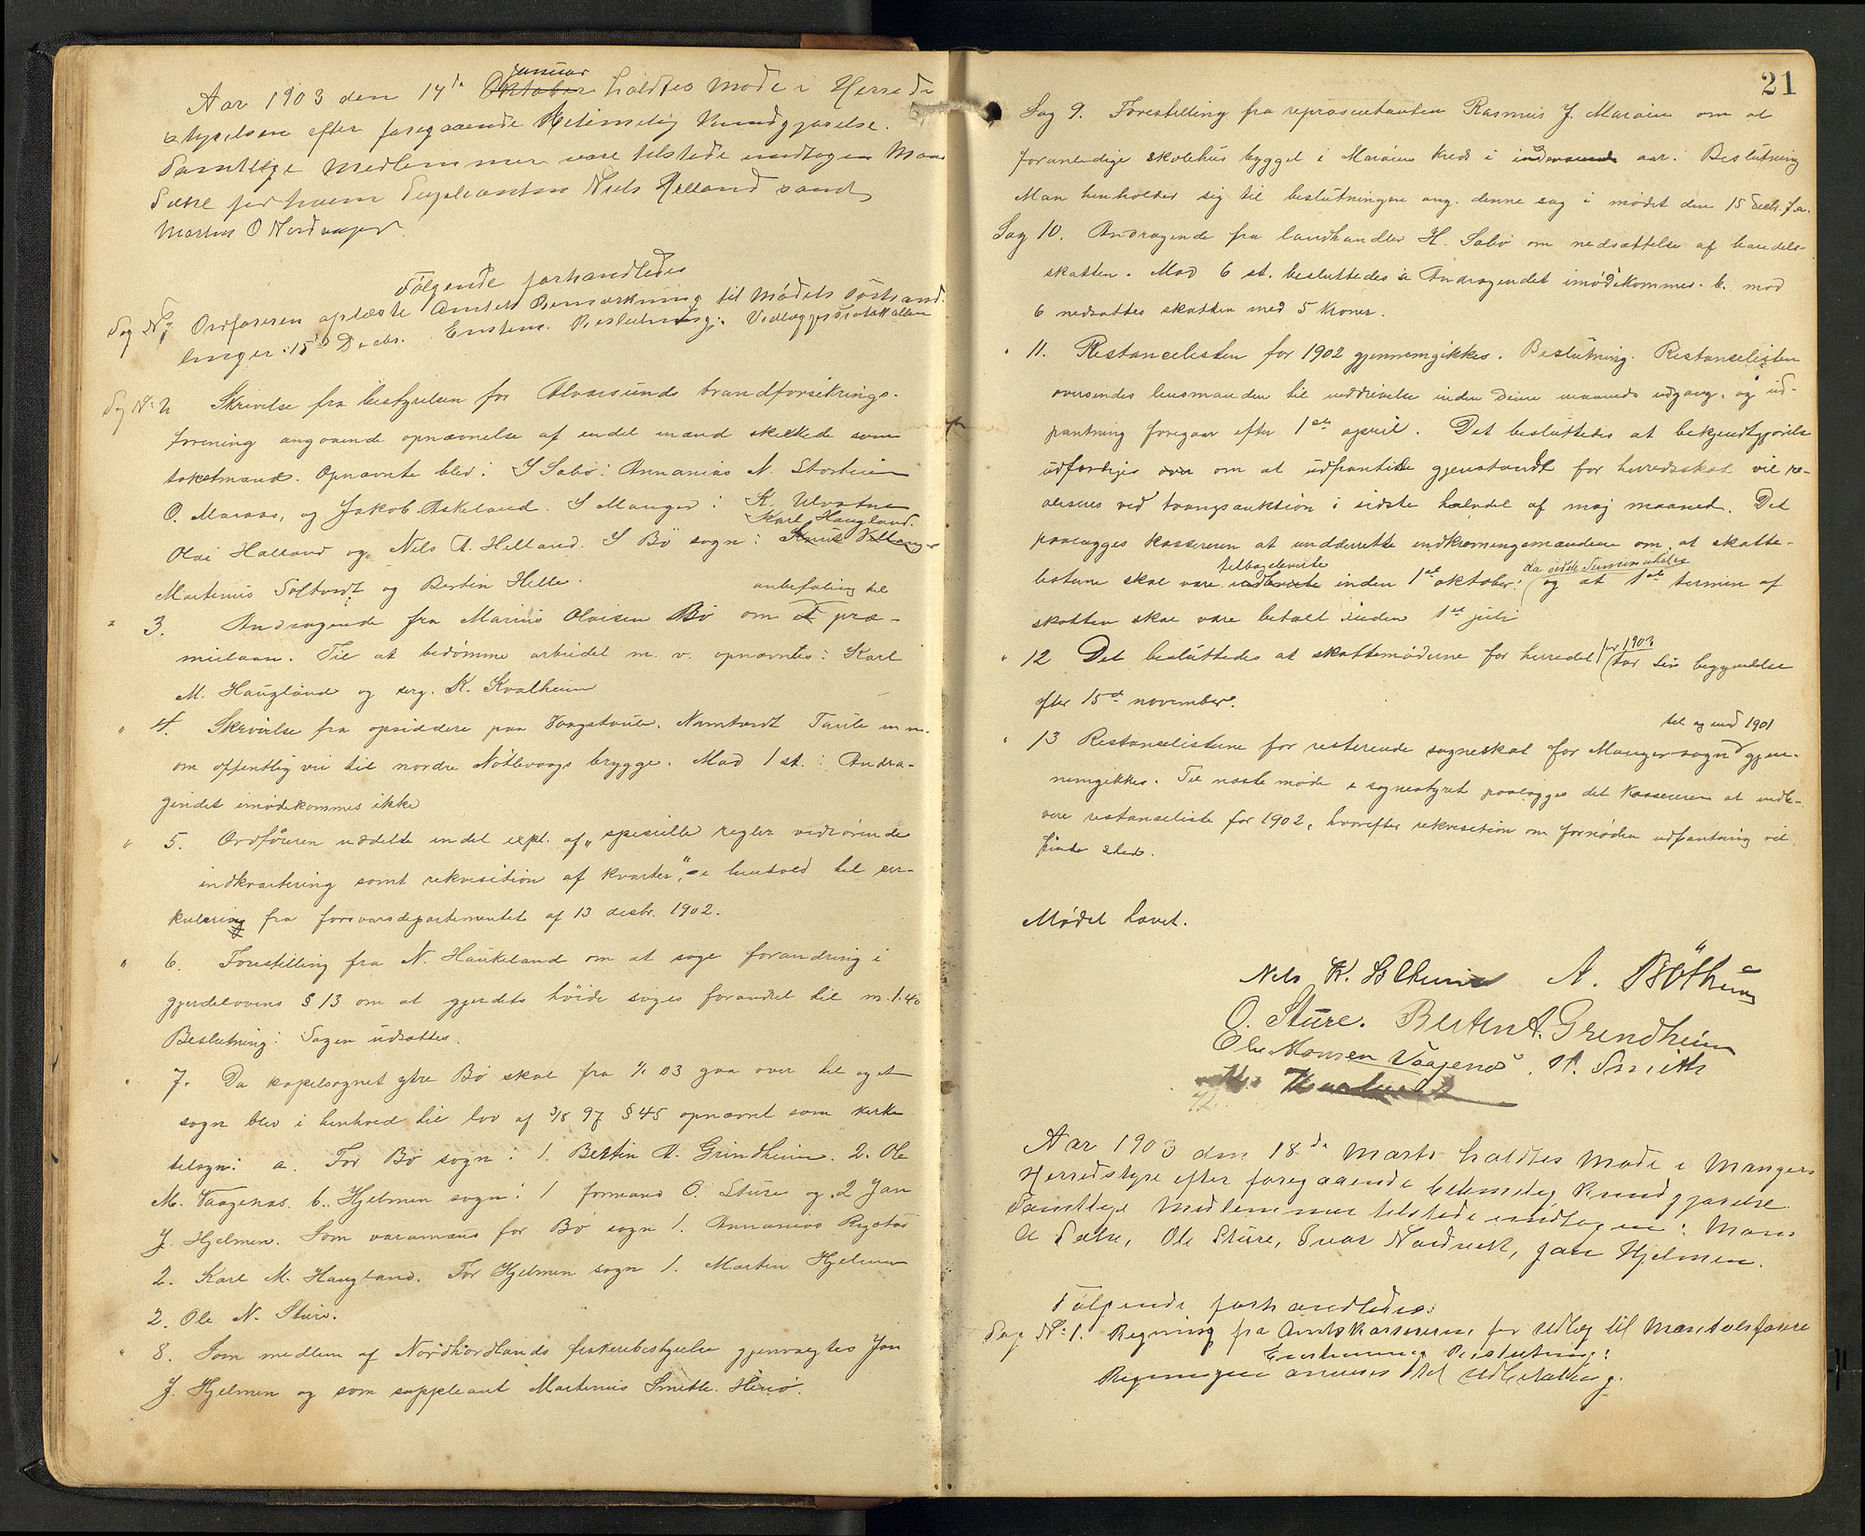 Januar
Aar 1903 den 14de Oktober holdtes møde i Herreds
styrelsen efter foregaaende betimelig kundgjørelse.
Samtlige medlemmer vare tilstede undtagen Mons
Sætre for ham Supleanten Niels Helland samt
Martin O Nordanger.
Følgende forhandledes
Sag No 1 Ordføreren oplæste Amtets Bemærkning til Mødets Forhand
linger 15de Decbr. Enstem. Beslutning: Vedlægges
Sag No: 2 Skrivelse fra bestyrelsen for Alversunds brandforsikrings-
forening angaaende opnævnelse af endel mænd skikkede som
takstmænd. Opnævnte blev: I Sæbø: Annanias N. Storheim
O. Maraas, og Jakob Askeland. I Manger: K. Ulvatne
Karl Haugland.
Olai Halland og Nils A. Helland. I Bø sogn: Knut Vollanger
Martinus Toftvedt og Bertin Hille.
anbefaling til
" 3. Andragende fra Marius Olaisen Bø om et præ-
mielaan. Til at bedømme arbeidet m. v. opnævntes: Karl
M. Haugland og serg. K. Kvalheim
" 4. Skrivelse fra opsiddere paa Vaagstaule. Namtvedt Taule m m.
om offentlig vei til nordre Nøtlevaags brygge. Mod 1 st.: Andra-
gendet imødekommes ikke
" 5. Ordføreren uddelte endel expl. af "spesielle regler vedrørende
indkvartering samt rekvisition af kvarter", i henhold til cir-
kulering fra forsvarsdepartementet af 13 desbr. 1902.
" 6. Forestilling fra N. Haukeland om at søge forandring i
gjerdelovens § 13 om at gjerdets høide søges forandret til m. 1.40
Beslutning: Sagen udsættes.
" 7. Da kapelsognet ytre Bø skal fra 1/1 03 gaa over til eget
sogn blev i henhold til lov af 3/8 97 § 45 opnævnt som kirke
tilsyn: a. For Bø sogn: 1. Bertin A. Grindheim. 2. Ole
M. Vaagenæs. b. Hjelmen sogn: 1 formand O. Sture og 2 Jan
J. Hjelmen. Som varamænd for Bø sogn 1. Annanias Rogstad
2. Karl M. Haugland. For Hjelmen sogn 1. Martin Hjelmen
2. Ole N. Sture.
" 8. Som medlem af Nordhordlands fiskeribestyrelse gjenvalgtes Jan
J. Hjelmen og som suppleant Martinus Smith. Herø.
21
Sag 9. Forestilling fra repræsentanten Rasmus J. Marøen om at
foranledige skolehus bygget i Marøens kreds i indeværende aar. Beslutning
Man henholder sig til beslutningen ang. denne sag i mødet den 15 decbr. f. a.
Sag 10. Andragende fra landhandler H. Sæbø om nedsættelse af handels-
skatten. Mod 6 st. besluttedes a Andragendet imødekommes. b. mod
6 nedsattes skatten med 5 kroner.
" 11. Restancelisten for 1902 gjennemgikkes. Beslutning. Restancelisten
oversendes lensmanden til inddrivelse inden denne maaneds udgang, og ud-
pantning foregaar efter 1ste april. Det besluttedes at bekjendtgjørelse
udfærdiges om at udpantede gjenstande for herredsskat vil re-
aliseres ved tvangsauktion i sidste halvdel af maj maaned. Det
paalægges kassereren at underrette indkrævningsmændene om at skatte-
tilbageleverte da sidste Termin udløber
listerne skal være indleverte inden 1ste oktober og at 1ste termin af
skatten skal være betalt inden 1ste juli
for 1903
" 12 Det besluttedes at skattemøderne for herredet tar sin begyndelse
efter 15de november.
til og med 1901
" 13 Restancelisterne for resterende sogneskat for Manger sogn gjen-
nemgikkes. Til næste møde i sognestyret paalægges det kassereren at indle-
vere restanseliste for 1902, hvorefter rekvisition om fornøden udpantning vil
finde sted.
Mødet hævet.
Nels K. A. Böthun
O. Sture. Bertin A. Grendheim
Ole Monsen Vaagenes. M. Smith
Aar 1903 den 18de Marts holdtes møde i Mangers
Herredstyre efter foregaaende betimelig kundgjørelse
Samtlige Medlemmer tilstede undtagen: Mons
A Sætre, Ole Sture, Ivar Nordvik, Jan Hjelmen.
Følgende forhandledes:
Sag No: 1. Regning fra Amtskassereren for Udlæg til Mandalsførere
Enstemmig Beslutning:
Regningen anvises til Udbetaling.